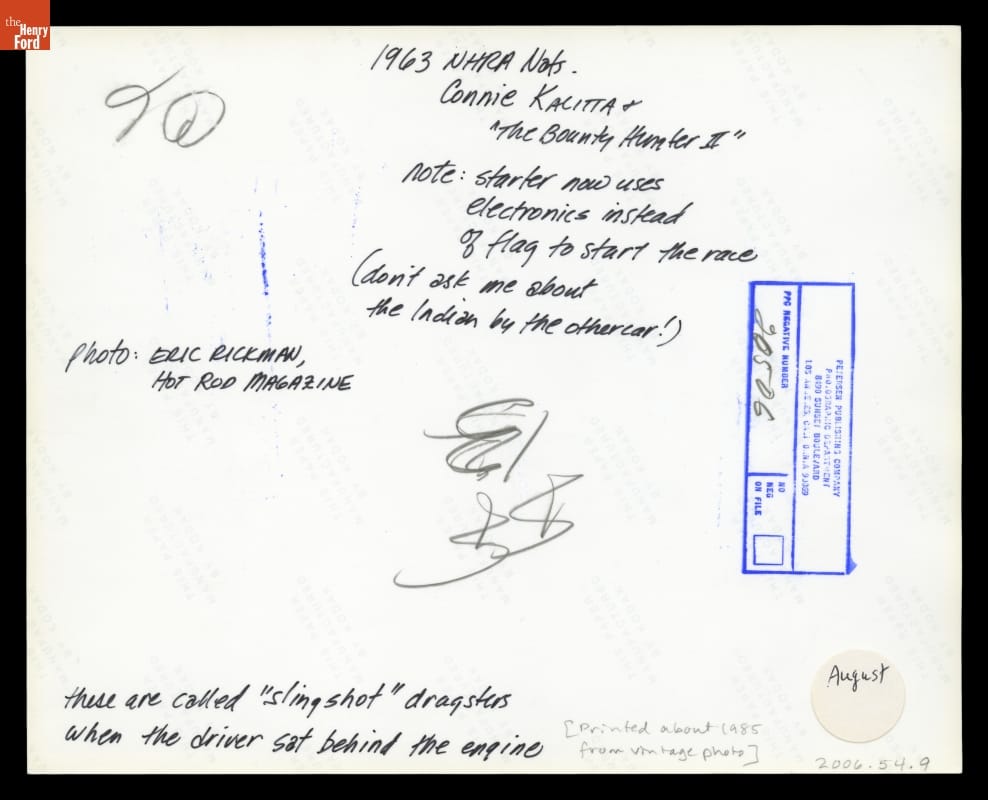 the
Henry
Ford
1963 NHRA Nats.
Connie KALITTA &
"The Bounty Hunter II"
note: starter now uses
electronics instead
of flag to start the race
(don't ask me about
the Indian by the other car!)
photo: ERIC RICKMAN,
HOT ROD MAGAZINE
PETERSEN PUBLISHING COMPANY
PHOTOGRAPHIC DEPARTMENT
8490 SUNSET BOULEVARD
LOS ANGELES, CALIFORNIA 90069
PPC NEGATIVE NUMBER
NO
NEG
ON FILE
August
these are called "slingshot" dragsters
when the driver sat behind the engine
[Printed about 1985
from vintage photo]
2006.54.9